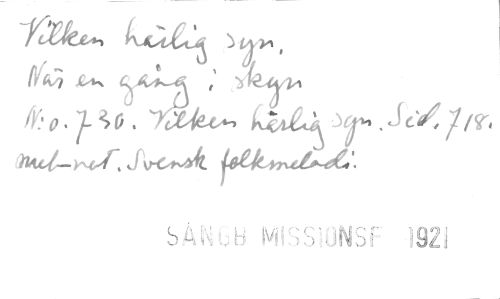 Vilken härlig syn,
När en gång i skyn
N:o. 730. Vilken härlig syn. Sid. 718.
mel-not. Svensk folkmelodi.
SÅNGB MISSIONSF 1921